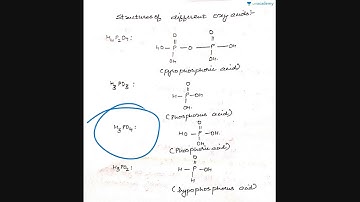 unacademy
Structures of different oxy acids:-
H4P2O7:
O O
HO - P - O - P - OH
OH OH
(Pyrophosphoric acid)
H3PO3:
O
H - P - OH
OH
(Phosphorus acid)
H3PO4:
O
HO - P - OH
OH
(Phosphoric acid)
H3PO2:
O
H - P - OH
H
(Hypophosphorus acid)